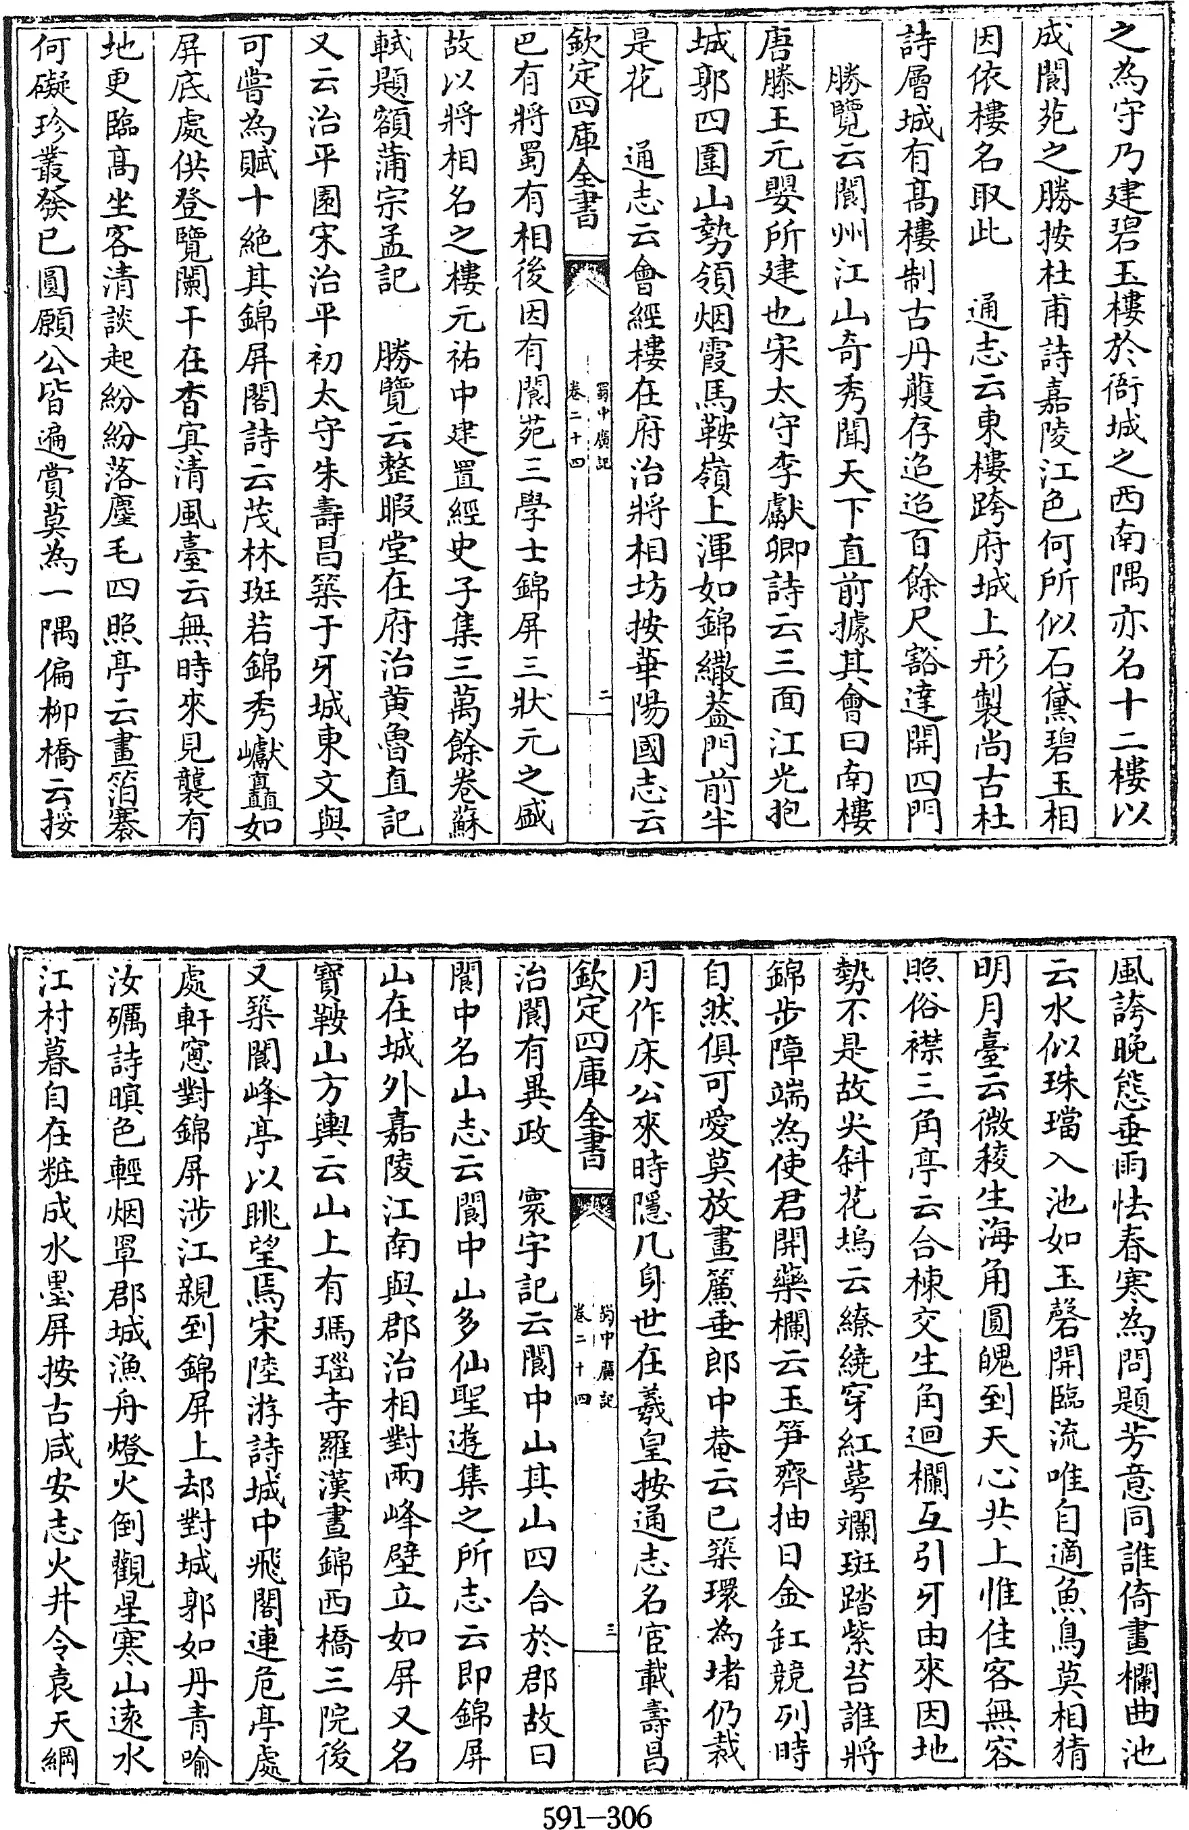 之為守乃建碧玉樓於衙城之西南隅亦名十二樓以
成閬苑之勝按杜甫詩嘉陵江色何所似石黛碧玉相
因依樓名取此　通志云東樓跨府城上形製尚古杜
詩層城有髙樓制古丹雘存迢迢百餘尺豁達開四門
勝覽云閬州江山奇秀聞天下直前據其會曰南樓
唐滕王元嬰所建也宋太守李獻卿詩云三面江光抱
城郭四圍山勢領烟霞馬鞍嶺上渾如錦繖葢門前半
是花　通志云會經樓在府治將相坊按華陽國志云
欽定四庫全書
蜀中廣記
卷二十四
二
巴有將蜀有相後因有閬苑三學士錦屏三狀元之盛
故以將相名之樓元祐中建置經史子集三萬餘卷蘇
軾題額蒲宗孟記　勝覽云整暇堂在府治黄魯直記
又云治平園宋治平初太守朱壽昌築于牙城東文與
可嘗為賦十絶其錦屏閣詩云茂林斑若錦秀巘矗如
屏底處供登覽闌干在杳冥清風臺云無時來見襲有
地更臨髙坐客清談起紛紛落麈毛四照亭云畫箔褰
何礙珍叢發已圓願公皆遍賞莫為一隅偏柳橋云挼
風誇晩態垂雨怯春寒為問題芳意同誰倚畫欄曲池
云水似珠璫入池如玉磬開臨流唯自適魚鳥莫相猜
明月臺云微稜生海角圓魄到天心共上惟佳客無容
照俗襟三角亭云合棟交生角迴欄互引牙由來因地
勢不是故尖斜花塢云繚繞穿紅蕚斕斑踏紫苔誰將
錦步障端為使君開藥欄云玉笋齊抽日金缸競列時
自然俱可愛莫放畫簾垂郎中菴云已築環為堵仍裁
月作床公來時隱几身世在羲皇按通志名宦載壽昌
欽定四庫全書
蜀中廣記
卷二十四
三
治閬有異政　寰宇記云閬中山其山四合於郡故曰
閬中名山志云閬中山多仙聖遊集之所志云即錦屏
山在城外嘉陵江南與郡治相對兩峰壁立如屏又名
寶鞍山方輿云山上有瑪瑙寺羅漢畫錦西橋三院後
又築閬峰亭以眺望焉宋陸游詩城中飛閣連危亭處
處軒窻對錦屏涉江親到錦屏上却對城郭如丹青喻
汝礪詩暝色輕烟罩郡城漁舟燈火倒觀星寒山遠水
江村暮自在粧成水墨屏按古咸安志火井令袁天綱
591-306